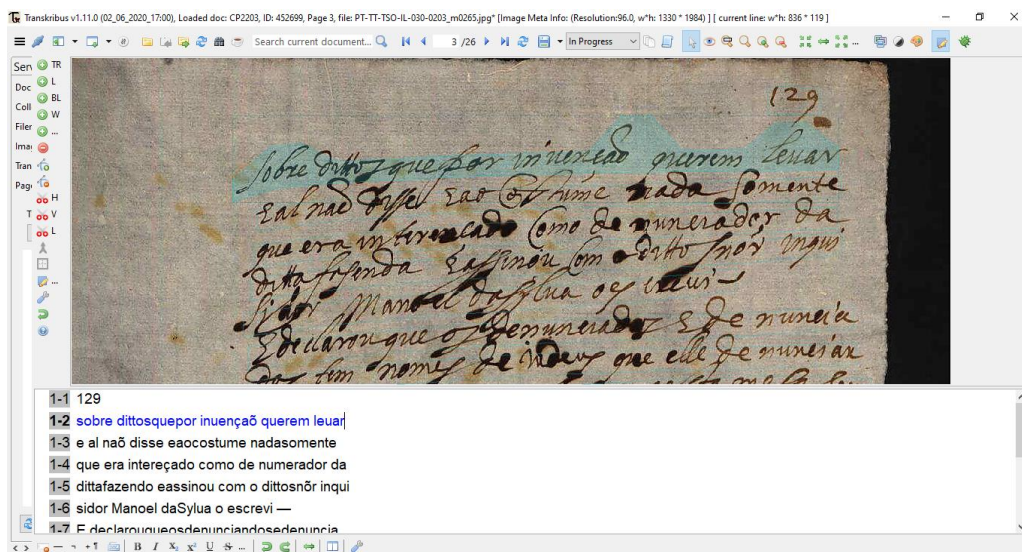 Transkribus v1.11.0 (02_06_2020_17:00), Loaded doc: CP2203, ID: 452699, Page 3, file: PT-TT-TSO-IL-030-0203_m0265.jpg* [Image Meta Info: (Resolution:96.0, w*h: 1330 * 1984) ] [ current line: w*h: 836 * 119 ]
Search current document... 3 /26 In Progress
Serv
Doc
Coll
Filer
Ima
Tran
Page
T
TR
L
BL
W
...
H
V
L
...
129
sobre dittos que por invencaõ querem leuar
e al naõ disse e ao costume nada somente
que era intereçado como denunciador da
ditta fasenda e assinou com o ditto snõr inqui
sidor Manoel da Sylua o escrevi
E declarou que os denunciados e denuncia
dos tem nomes de que elle denunciar
1-1 129
1-2 sobre dittosquepor inuençaõ querem leuar
1-3 e al naõ disse eaocostume nadasomente
1-4 que era intereçado como de numerador da
1-5 dittafazendo eassinou com o dittosnõr inqui
1-6 sidor Manoel daSylua o escrevi —
1-7 E declarouqueosdenunciandosedenuncia
B I X₂ X² U S ...